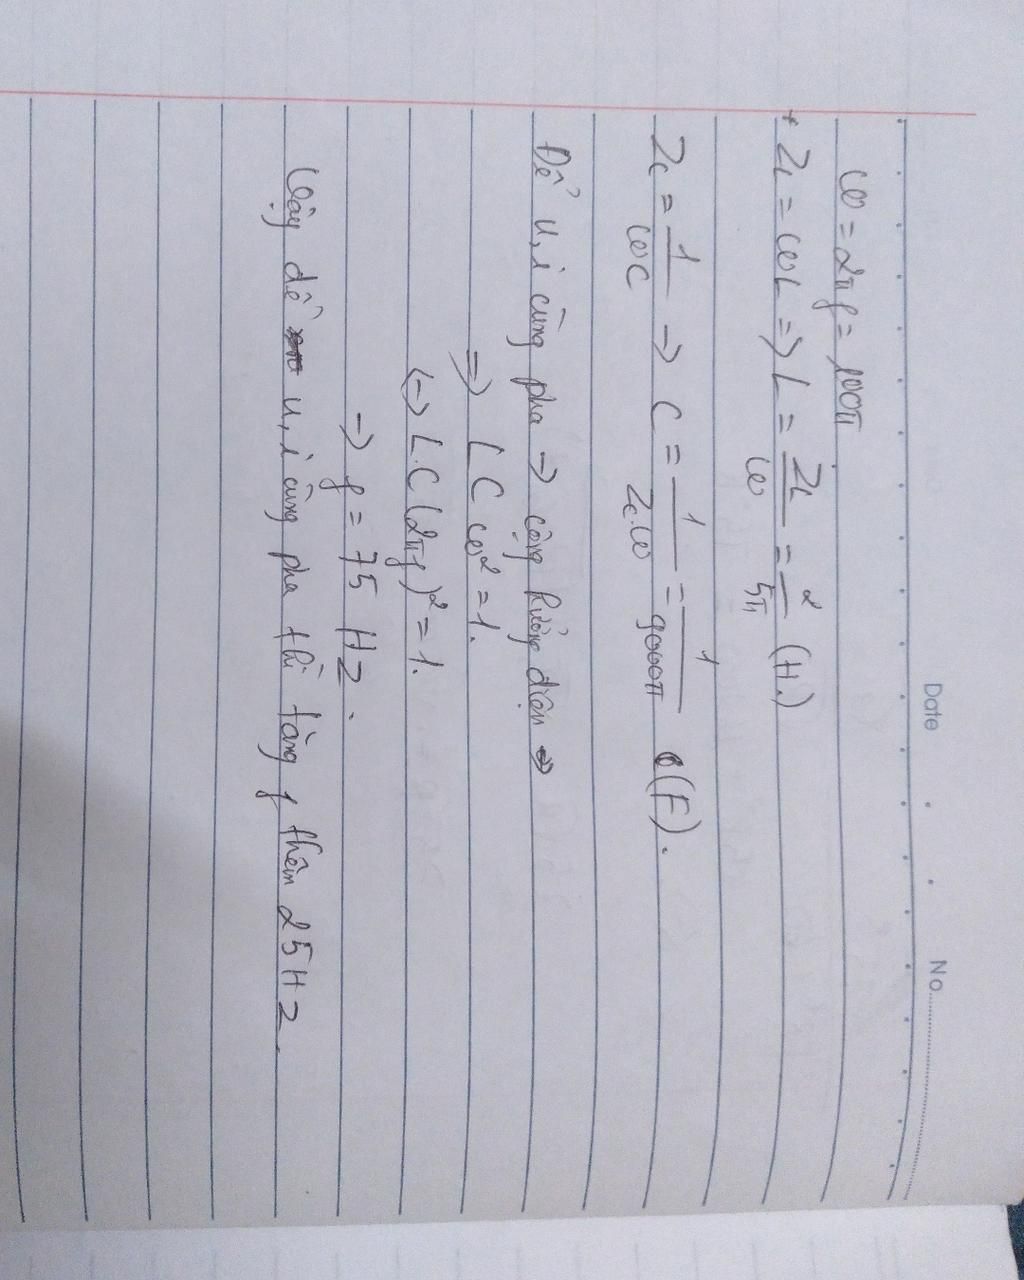 Date No
ω = 2πf = 100π
+ ZL = ωL => L = ZL/ω = 2/5π (H.)
Zc = 1/ωC -> C = 1/Zc.ω = 1/9000π (F).
Để u, i cùng pha -> cộng hưởng điện =>
=> LCω² = 1.
<=> L.C (2πf)² = 1.
-> f = 75 Hz.
Vậy để u, i cùng pha thì tăng f thêm 25Hz.